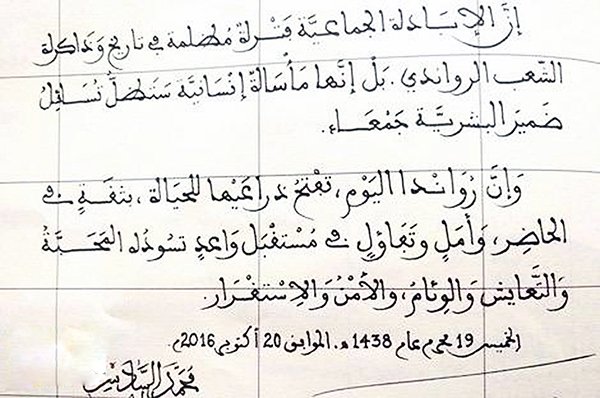 إنَّ الإبَادلة الجماعيَّة فَتْرلة مُظلمة في تاريخ وَذاكرلة
الشّعب الرواندي. بَلْ إنَّها مَأسَالةٌ إنْسَانيَّة سَتَظلُّ تُسَائِلُ
ضَميرَ البشريَّة جَمْعَاء.
وَإنَّ رُوَانْدا اليَوْم، تَفْتحُ ذراعَيْها للحيَالة، بثقةٍ في
الحَاضِر، وَأمَلٍ وتَفاؤلٍ في مُسْتقْبَل وَاعدٍ تسُودُه المَحَبَّةُ
وَالتَّعايش وَالوِئامُ، والأمْنُ وَالاِسْتقْرَار.
الخميس 19 محرم عام 1438 هـ. الموافق 20 أكتوبر 2016م.
محمد السَّادس